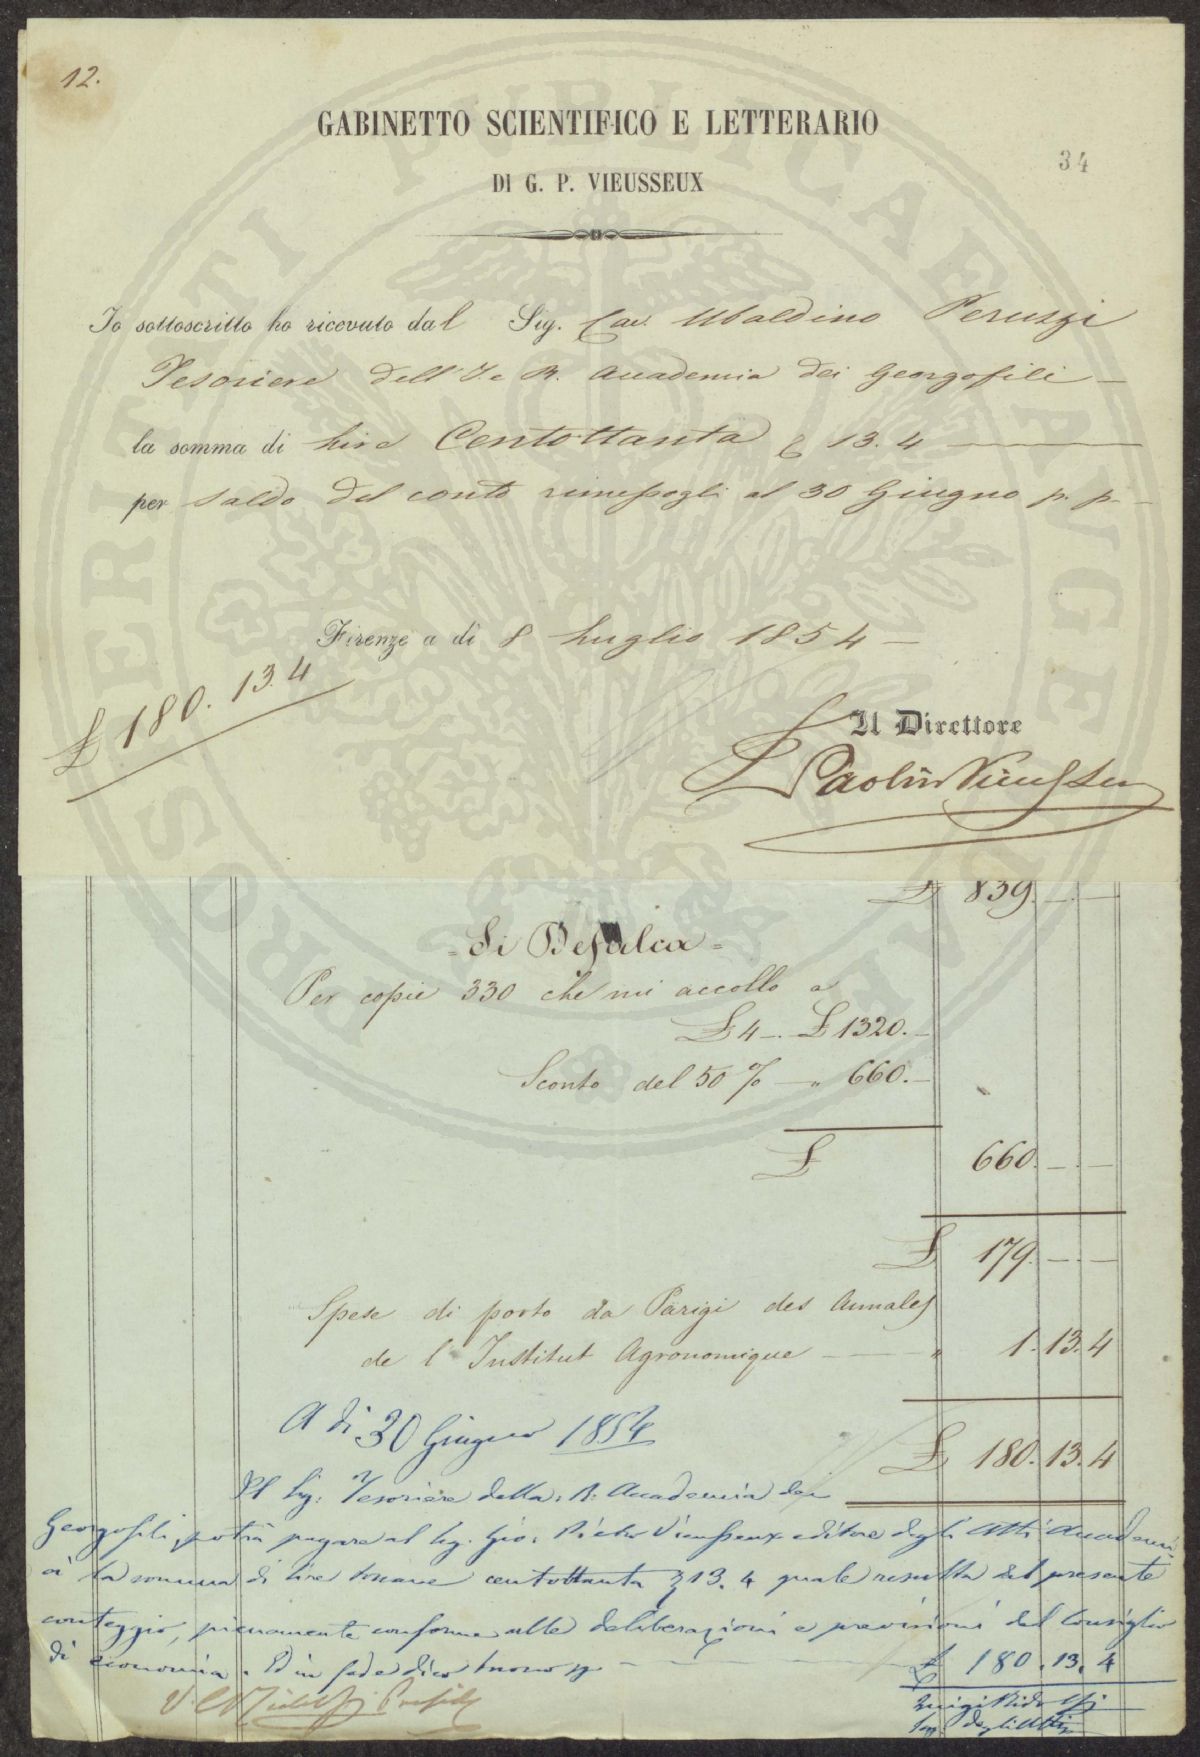 12.
GABINETTO SCIENTIFICO E LETTERARIO
34
DI G. P. VIEUSSEUX
Io sottoscritto ho ricevuto dal Sig. Cav. Ubaldino Peruzzi
Tesoriere dell'I. e R. Accademia dei Georgofili —
la somma di Lire Centottanta £ 13. 4 —
per saldo del conto rimessogli al 30 Giugno p. p. —
Firenze a dì 8 Luglio 1854 —
£ 180. 13. 4
Il Direttore
Vieusseux
£ 839. — —
= Si Defalca =
Per copie 330 che mi accollo a
£ 4 —. £ 1320. —
Sconto del 50 % — " 660. —
£ 660. — —
£ 179. — —
Spese di porto da Parigi des Annales
de l'Institut Agronomique — " 1. 13. 4
£ 180. 13. 4
A dì 30 Giugno 1854
Il Sig. Tesoriere della R. Accademia dei
Georgofili, potrà pagare al Sig. Gio: Pietro Vieusseux editore degli Atti Accademi
ci la somma di lire toscane centottanta 13. 4 quale resulta dal presente
conteggio, pienamente conforme alle deliberazioni e previsioni del Consiglio
di economia. Ed in fede dico buono p — £ 180. 13. 4
Luigi Ridolfi
Seg. degli Atti
PROSPERITATI PUBLICAE AUGENDAE